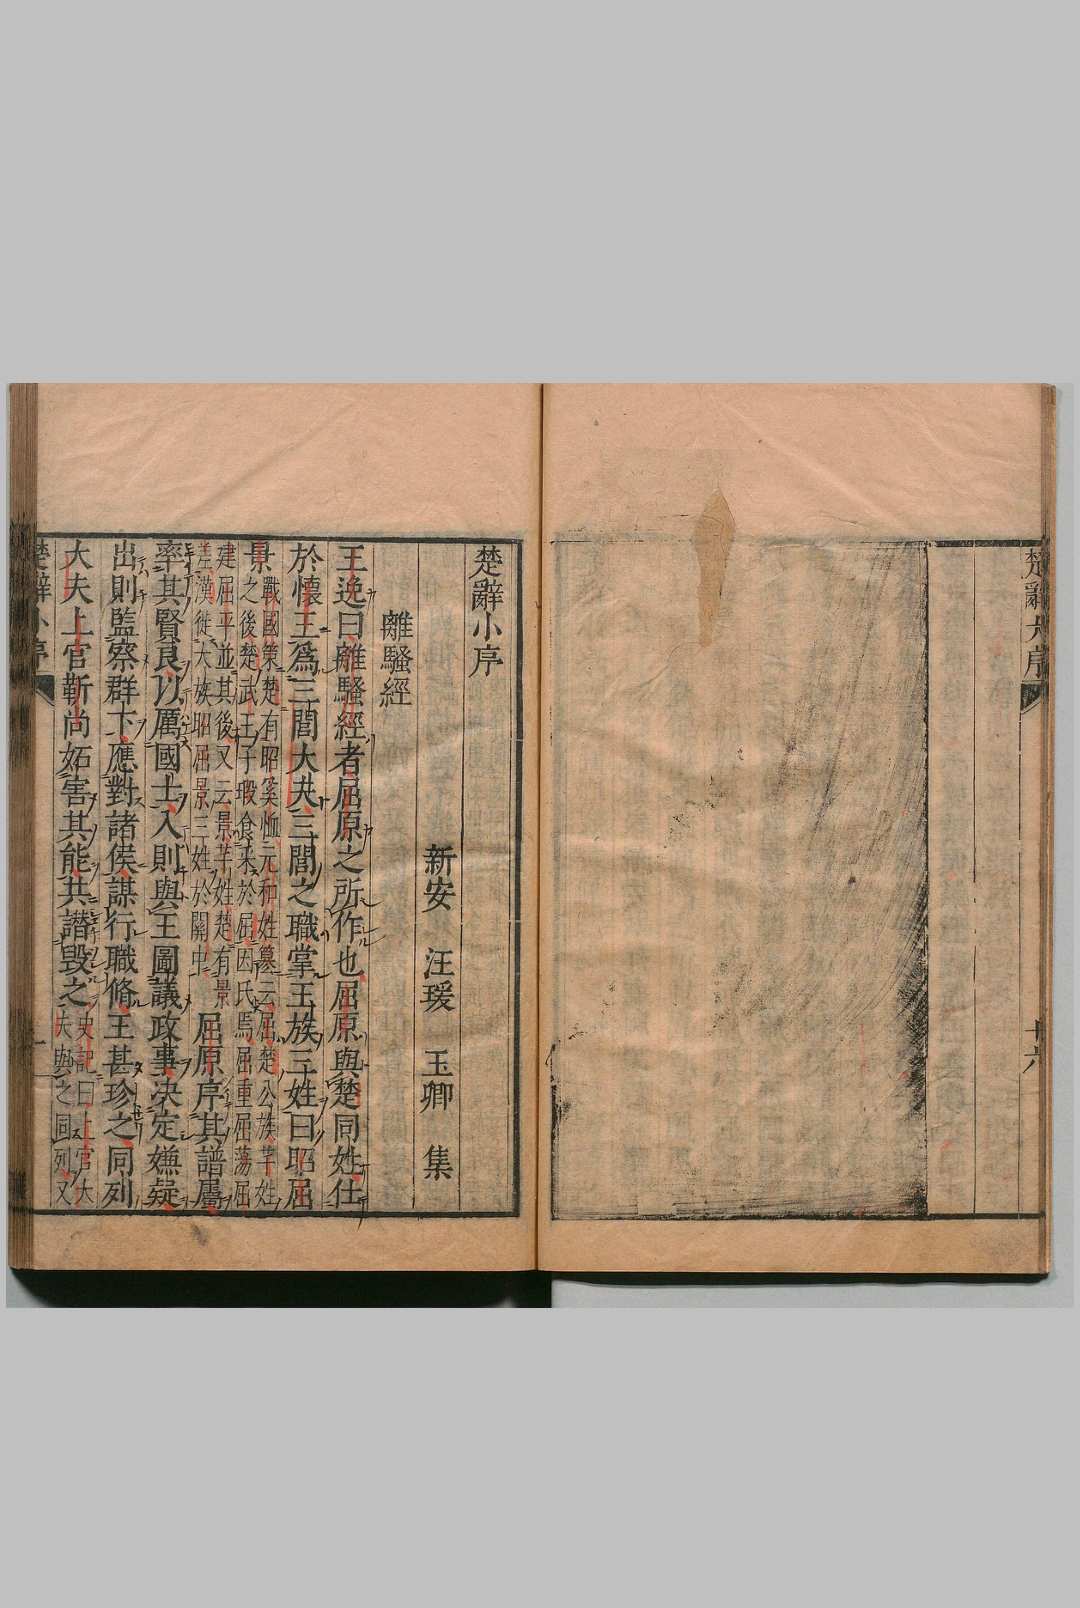 楚辭大序
楚辭小序
新安 汪瑗 玉卿 集
離騷經
王逸曰離騷經者屈原之所作也屈原與楚同姓仕
於懷王爲三閭大夫三閭之職掌王族三姓曰昭屈
景
戰國策楚有昭奚恤元和姓纂云屈楚公族芊姓
之後楚武王子瑕食采於屈因氏焉屈重屈蕩屈
建屈平並其後又云景芊姓楚有景
差漢徙大族昭屈景三姓於關中
屈原序其譜屬
率其賢良以厲國士入則與王圖議政事决定嫌疑
出則監察群下應對諸侯謀行職脩王甚珍之同列
大夫上官靳尚妬害其能共譖毀之
史記曰上官大
夫與之同列又
楚辭小序 一